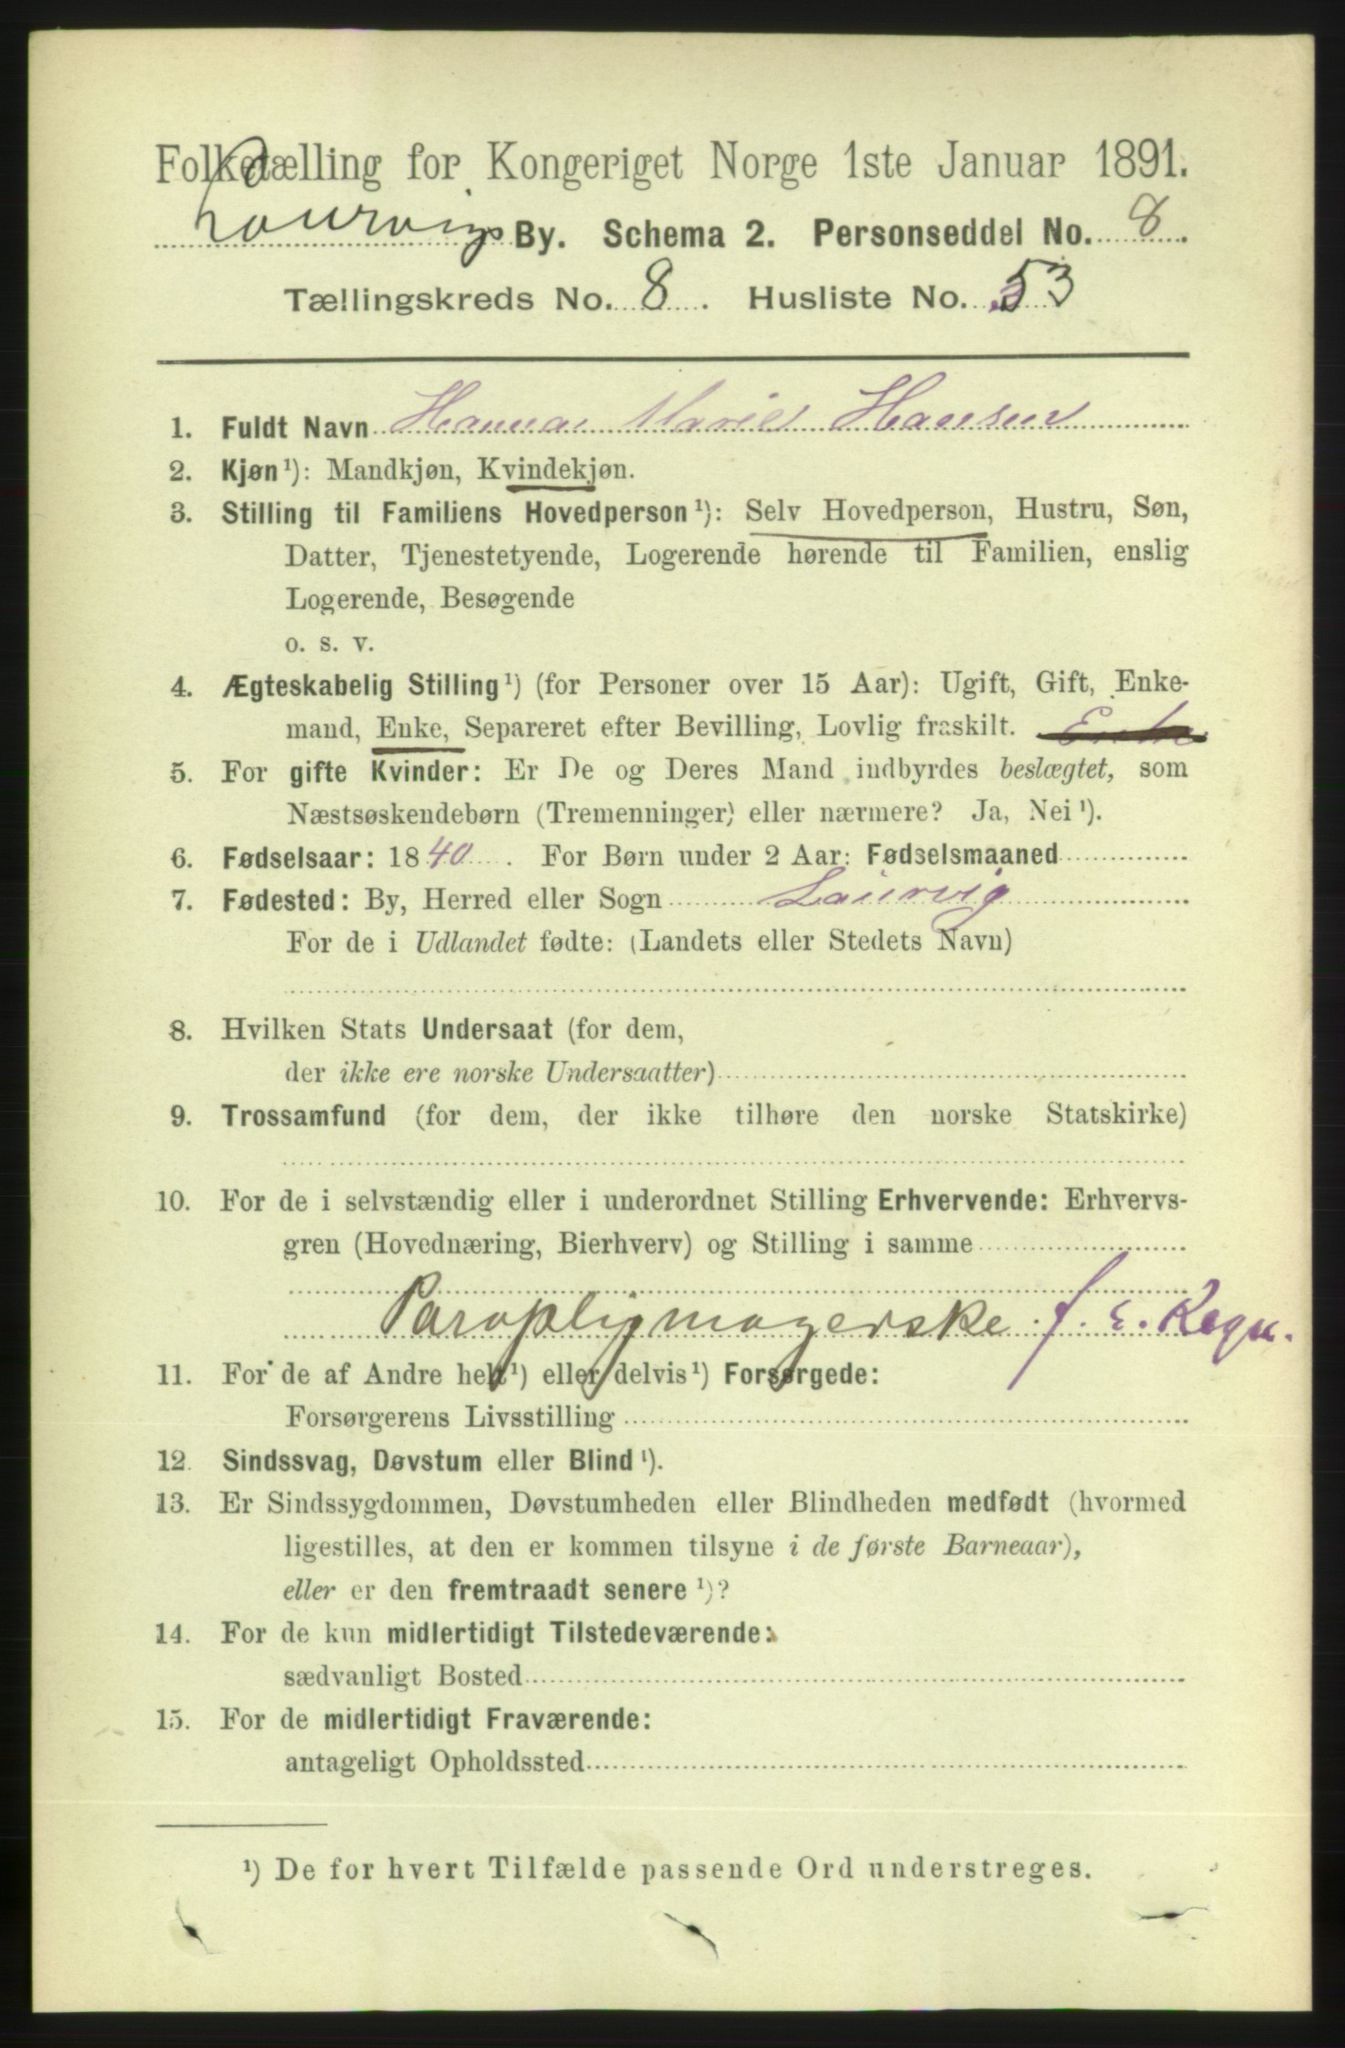 Folketælling for Kongeriget Norge 1ste Januar 1891.
Laurvigs By. Schema 2. Personseddel No. 8.
Tællingskreds No. 8. Husliste No. 53
1. Fuldt Navn Hanna Marie Hansen
2. Kjøn ¹): Mandkjøn, Kvindekjøn.
3. Stilling til Familiens Hovedperson ¹): Selv Hovedperson, Hustru, Søn,
Datter, Tjenestetyende, Logerende hørende til Familien, enslig
Logerende, Besøgende
o. s. v.
4. Ægteskabelig Stilling ¹) (for Personer over 15 Aar): Ugift, Gift, Enke-
mand, Enke, Separeret efter Bevilling, Lovlig fraskilt. Enke
5. For gifte Kvinder: Er De og Deres Mand indbyrdes beslægtet, som
Næstsøskendebørn (Tremenninger) eller nærmere? Ja, Nei ¹).
6. Fødselsaar: 1840. For Børn under 2 Aar: Fødselsmaaned
7. Fødested: By, Herred eller Sogn Laurvig
For de i Udlandet fødte: (Landets eller Stedets Navn)
8. Hvilken Stats Undersaat (for dem,
der ikke ere norske Undersaatter)
9. Trossamfund (for dem, der ikke tilhøre den norske Statskirke)
10. For de i selvstændig eller i underordnet Stilling Erhvervende: Erhvervs-
gren (Hovednæring, Bierhverv) og Stilling i samme
Paraplymagerske f. e. Regn.
11. For de af Andre helt ¹) eller delvis ¹) Forsørgede:
Forsørgerens Livsstilling
12. Sindssvag, Døvstum eller Blind ¹).
13. Er Sindssygdommen, Døvstumheden eller Blindheden medfødt (hvormed
ligestilles, at den er kommen tilsyne i de første Barneaar),
eller er den fremtraadt senere ¹)?
14. For de kun midlertidigt Tilstedeværende:
sædvanligt Bosted
15. For de midlertidigt Fraværende:
antageligt Opholdssted
¹) De for hvert Tilfælde passende Ord understreges.